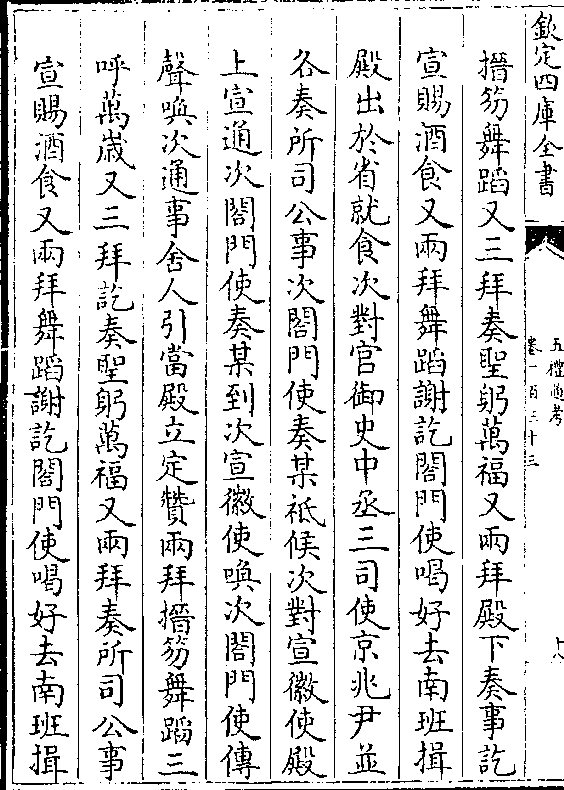 欽定四庫全書
五禮通考
卷一百三十三
十八
搢笏舞蹈又三拜奏聖躬萬福又兩拜殿下奏事訖
宣賜酒食又兩拜舞蹈謝訖閤門使喝好去南班揖
殿出於省就食次對官御史中丞三司使京兆尹並
各奏所司公事次閤門使奏某祗候次對宣徽使殿
上宣通次閤門使奏某到次宣徽使喚次閤門使傳
聲喚次通事舍人引當殿立定贊兩拜搢笏舞蹈三
呼萬歲又三拜訖奏聖躬萬福又兩拜奏所司公事
宣賜酒食又兩拜舞蹈謝訖閤門使喝好去南班揖